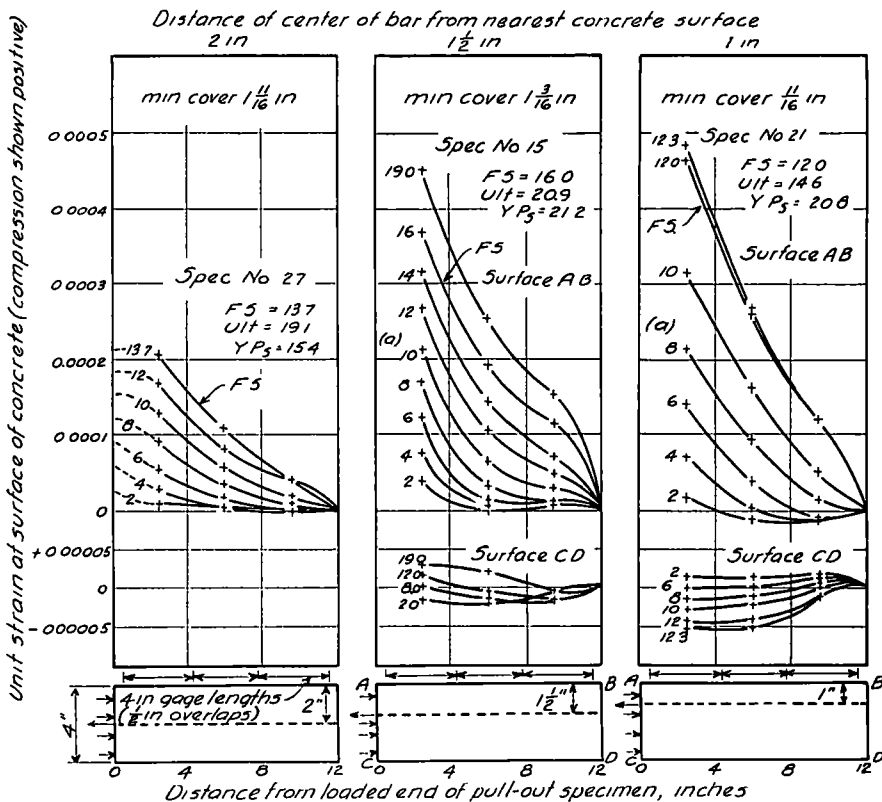 Distance of center of bar from nearest concrete surface
2 in
1 1/2 in
1 in
Unit strain at surface of concrete (compression shown positive)
0 0005
0 0004
0 0003
0.0002
0 0001
0
+0 00005
0
-0 00005
min cover 1 11/16 in
Spec No 27
F S = 13 7
Ult = 19 1
Y Ps = 15 4
13 7
12
10
8
6
4
2
F S
min cover 1 3/16 in
Spec No 15
F S = 16 0
Ult = 20.9
Y Ps = 21 2
190
16
14
12
(a)
10
8
6
4
2
FS
Surface AB
Surface CD
190
120
80
20
min cover 11/16 in
Spec No 21
F S = 12 0
Ult = 14 6
Y Ps = 20 8
12 3
120
FS.
Surface AB
10
(a)
8
6
4
2
Surface CD
2
6
8
10
12
12 3
4 in gage lengths
(1/2 in overlaps)
2"
4"
A
B
1 1/2"
C
D
A
B
1"
C
D
0 4 8 12
0 4 8 12
0 4 8 12
Distance from loaded end of pull-out specimen, inches